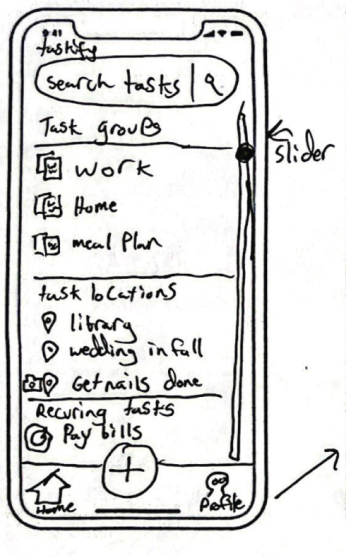 9:41
taskify
search tasks
Task groups
slider
work
Home
meal Plan
task locations
library
wedding in fall
Get nails done
Recuring tasks
Pay bills
Home
Profile